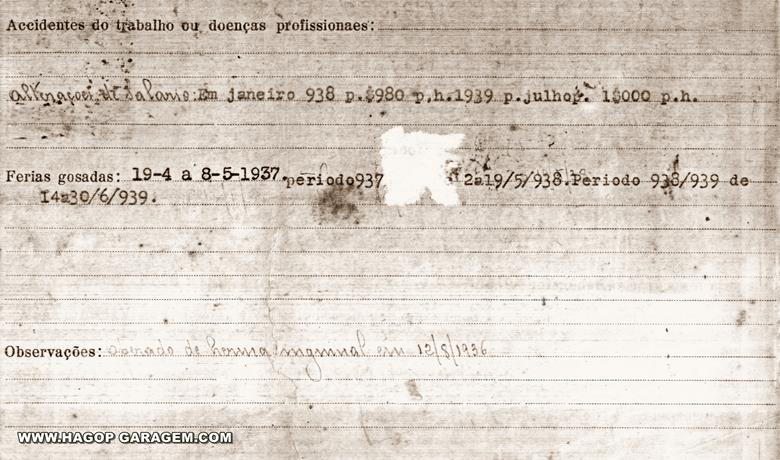 Accidentes do trabalho ou doenças profissionaes:
alterações de Salario: Em janeiro 938 p.$980 p.h.1939 p.julho p. 1$000 p.h.
Ferias gosadas: 19-4 a 8-5-1937. periodo937 2a19/5/938.Periodo 938/939 de
14a30/6/939.
Observações: operado de hernia inguinal em 12/8/1936
WWW.HAGOP GARAGEM.COM